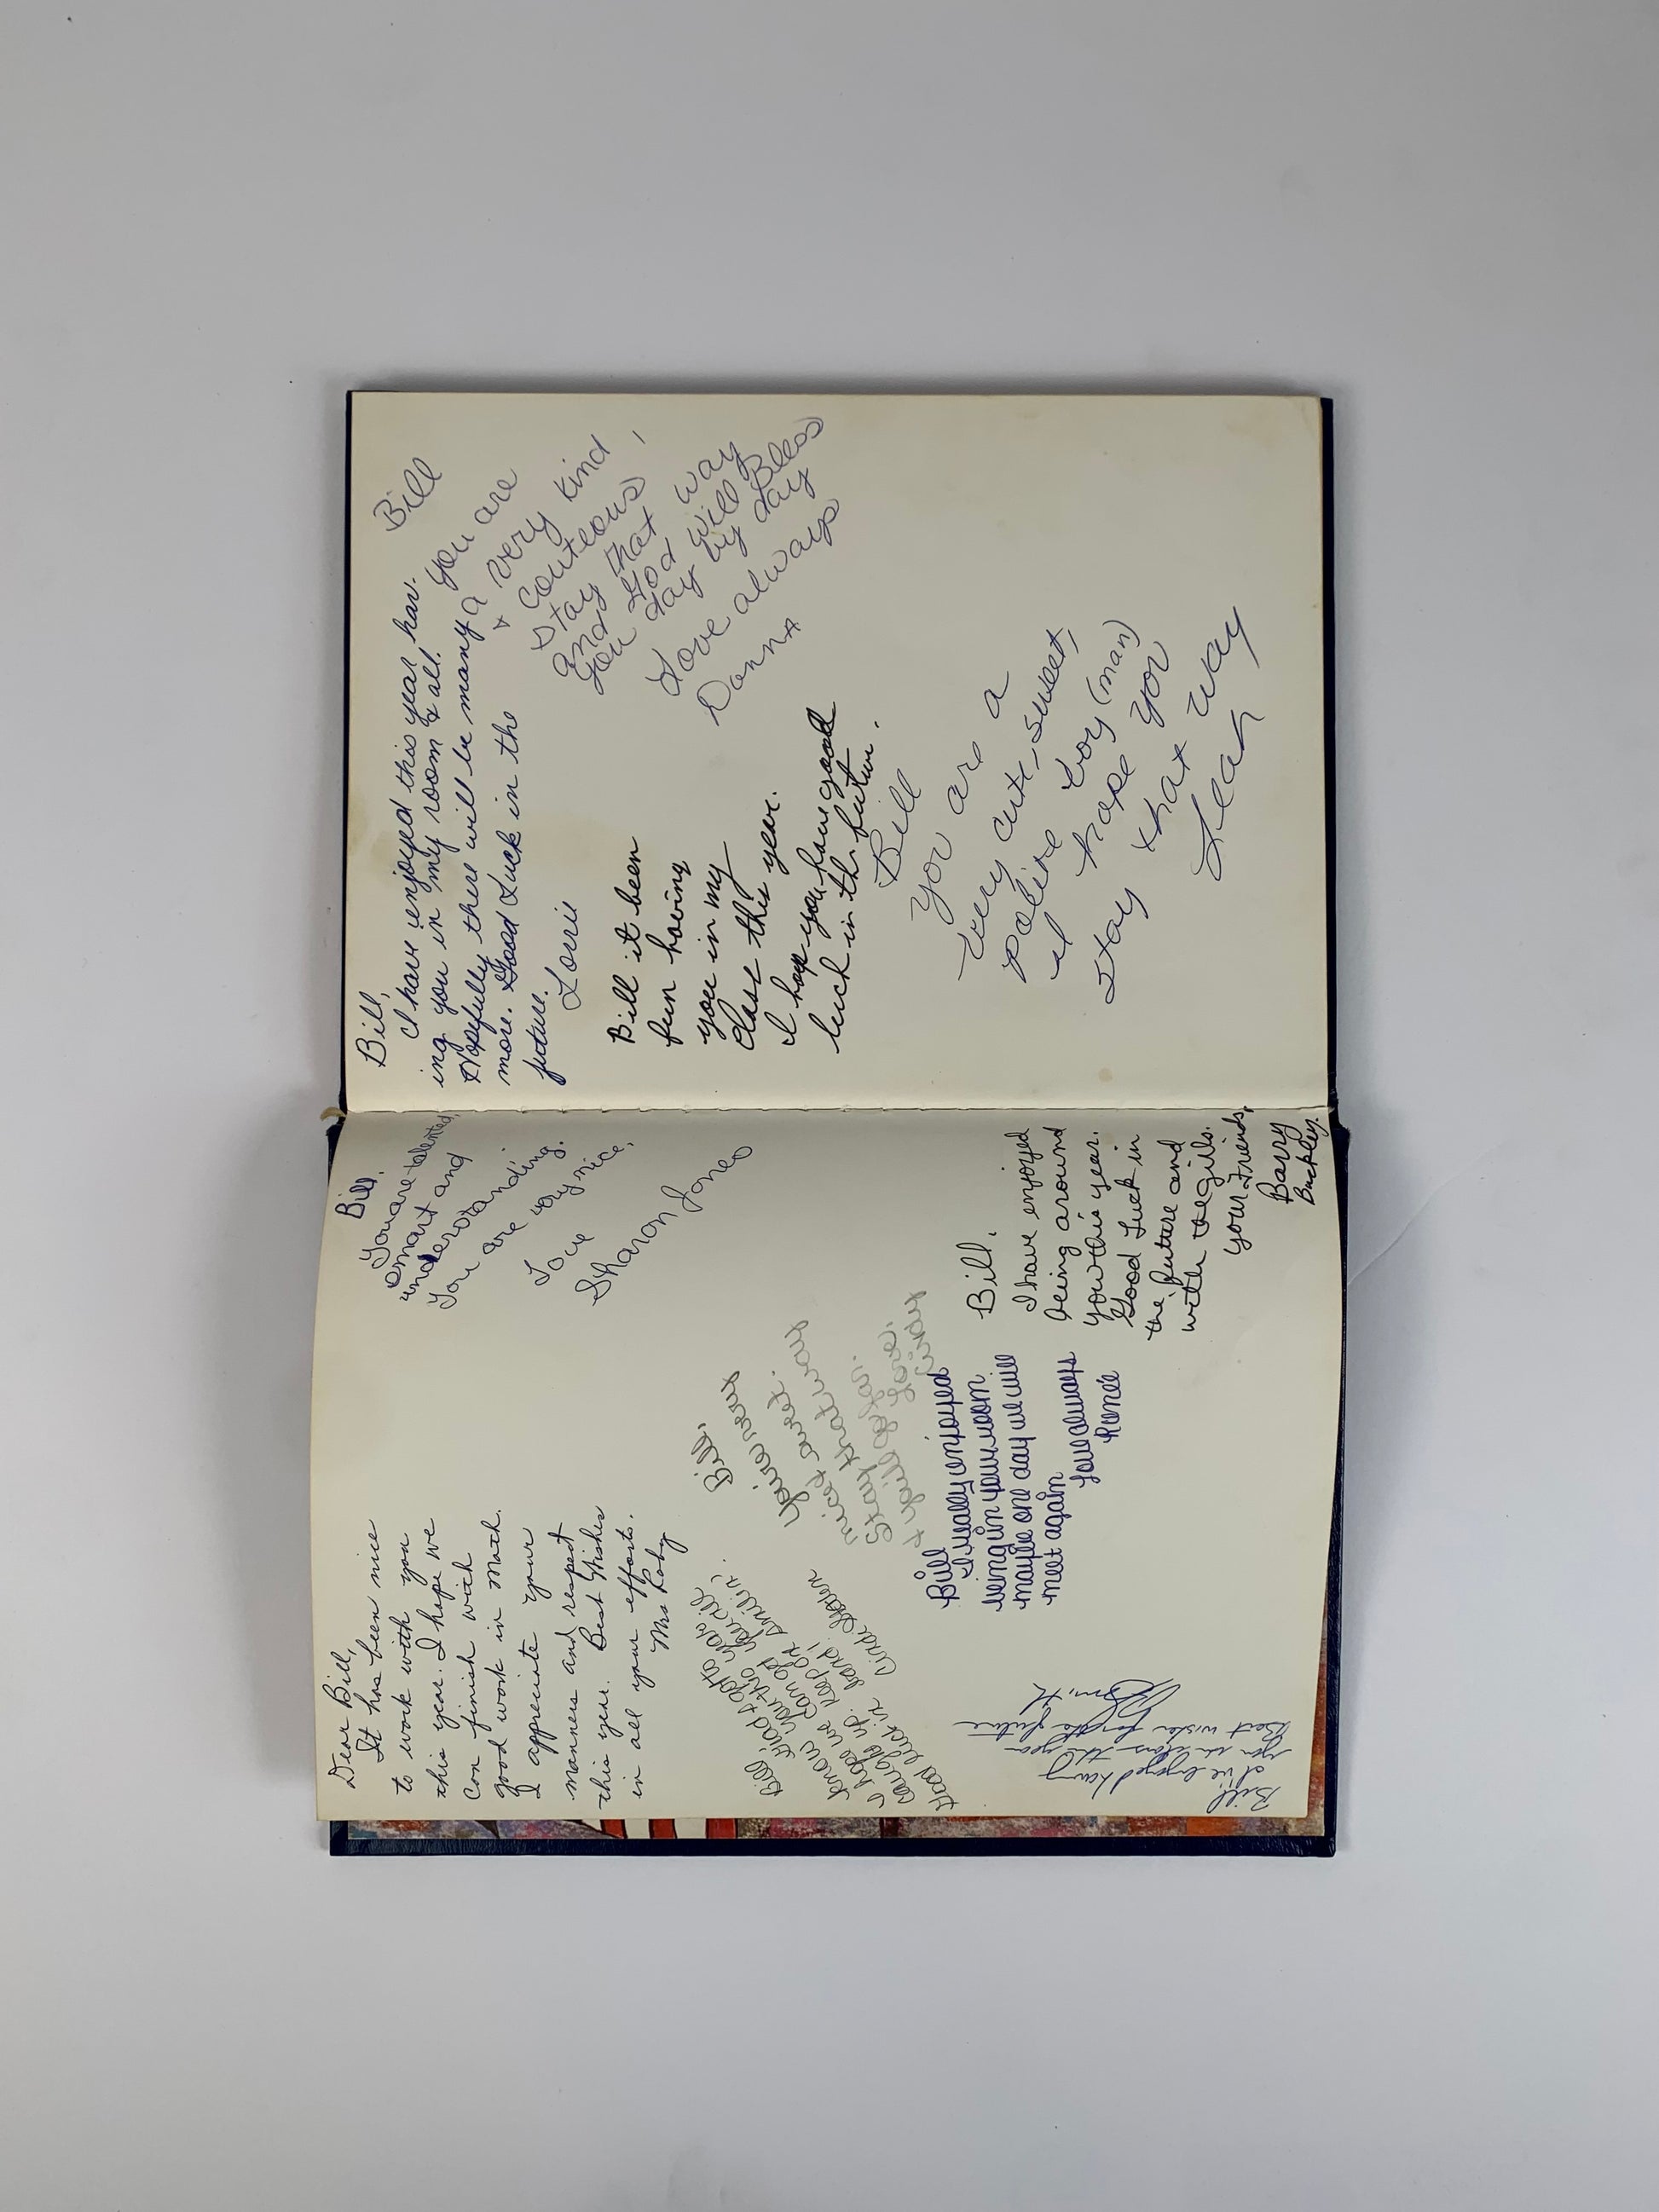 Dear Bill,
It has been nice
to work with you
this year. I hope we
can finish with
good work in math.
I appreciate your
manners and respect
this year. Best Wishes
in all your efforts.
Mrs Raby
Bill,
You are talented,
smart and
understanding.
You are very nice.
Love
Sharon Jones
Bill,
your very
sweet.
nice that way
Stay
Cindy
Bill, Glad I got to
know you this year.
I hope we can get
caught up. keep on smilin,
Good luck in band!
Bill
I really enjoyed
being in your room
maybe one day we will
meet again
Love always
Renée
Bill,
I have enjoyed
being around
you this year.
Good Luck in
the future and
with the girls.
your Friend,
Barry
Buckley.
Bill
I've enjoyed having
you in class this year
Best wishes for the future
Smith
Bill,
I have enjoyed this year hav-
ing you in my room & all.
Hopefully there will be many
more. Good Luck in the
future.
Lorrie
Bill
you are
a very kind,
& couteous
stay that way
and God will Bless
you day by day
Love always
Donna
Bill it been
fun having
you in my
class this year.
I hope you have good
luck in the future.
Bill
You are a
very cute, sweet,
polite boy (man)
I hope you
stay that way
Leah